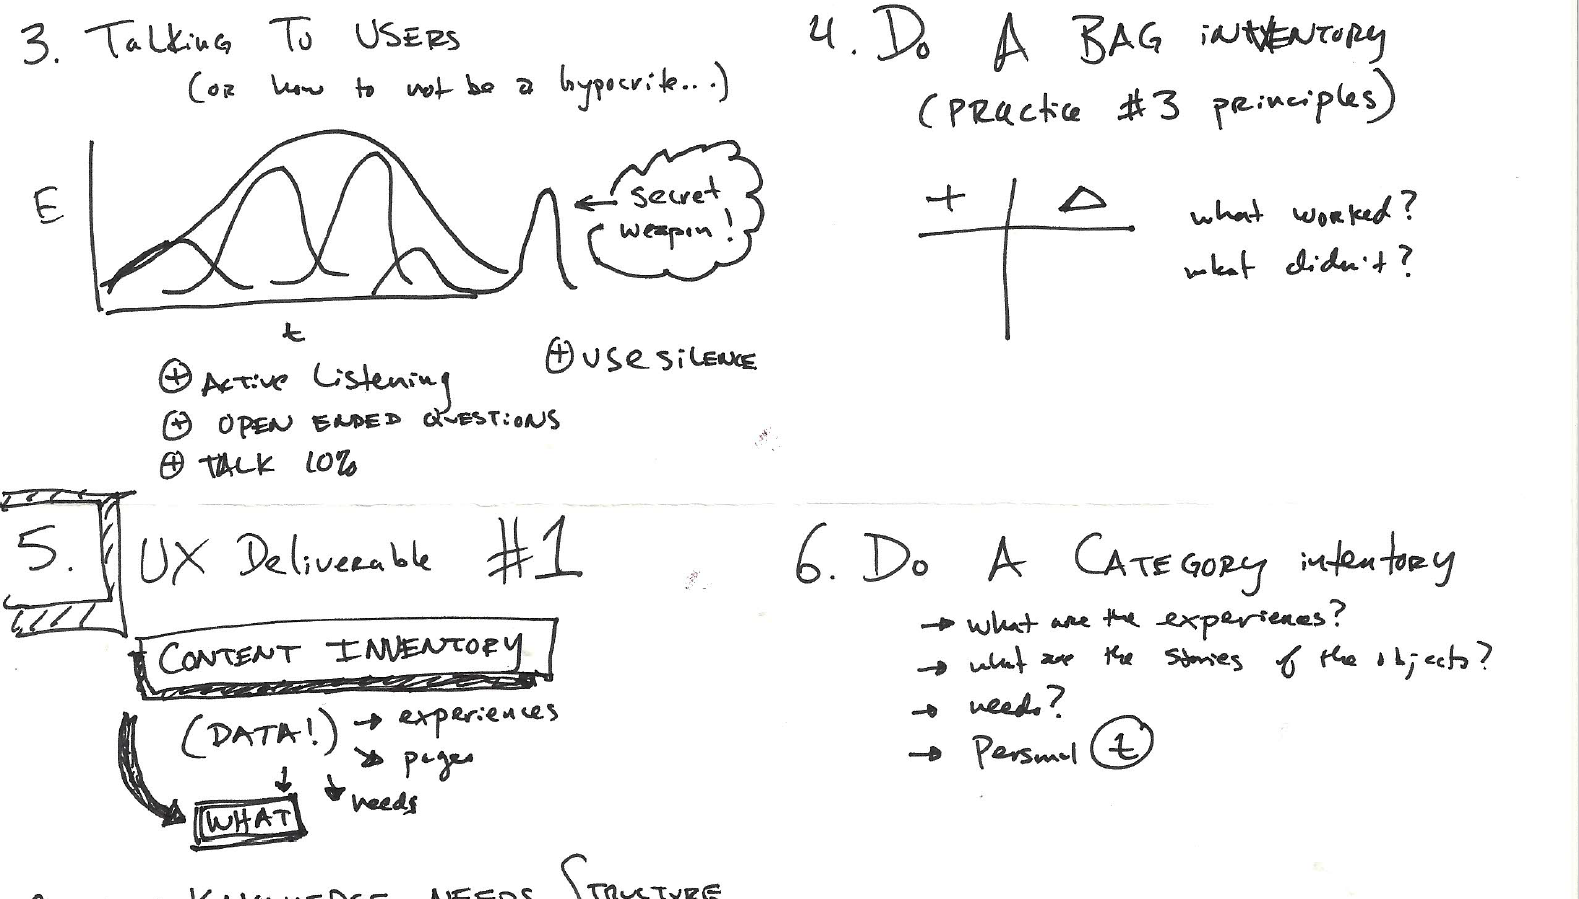 3. Talking To USERS
(or how to not be a hypocrite...)
E
secret
weapon!
t
+ Active Listening
+ OPEN ENDED QUESTIONS
+ TALK 10%
+ USE SILENCE
4. Do A BAG inVENTORY
(PRactice #3 principles)
+ Δ
what worked?
what didn't?
5. UX Deliverable #1
CONTENT INVENTORY
(DATA!) → experiences
↘ pages
↓ ↓ needs
WHAT
6. Do A CATEGORY inventory
→ what are the experiences?
→ what are the stories of the objects?
→ needs?
→ Personal t
KNOWLEDGE NEEDS STRUCTURE